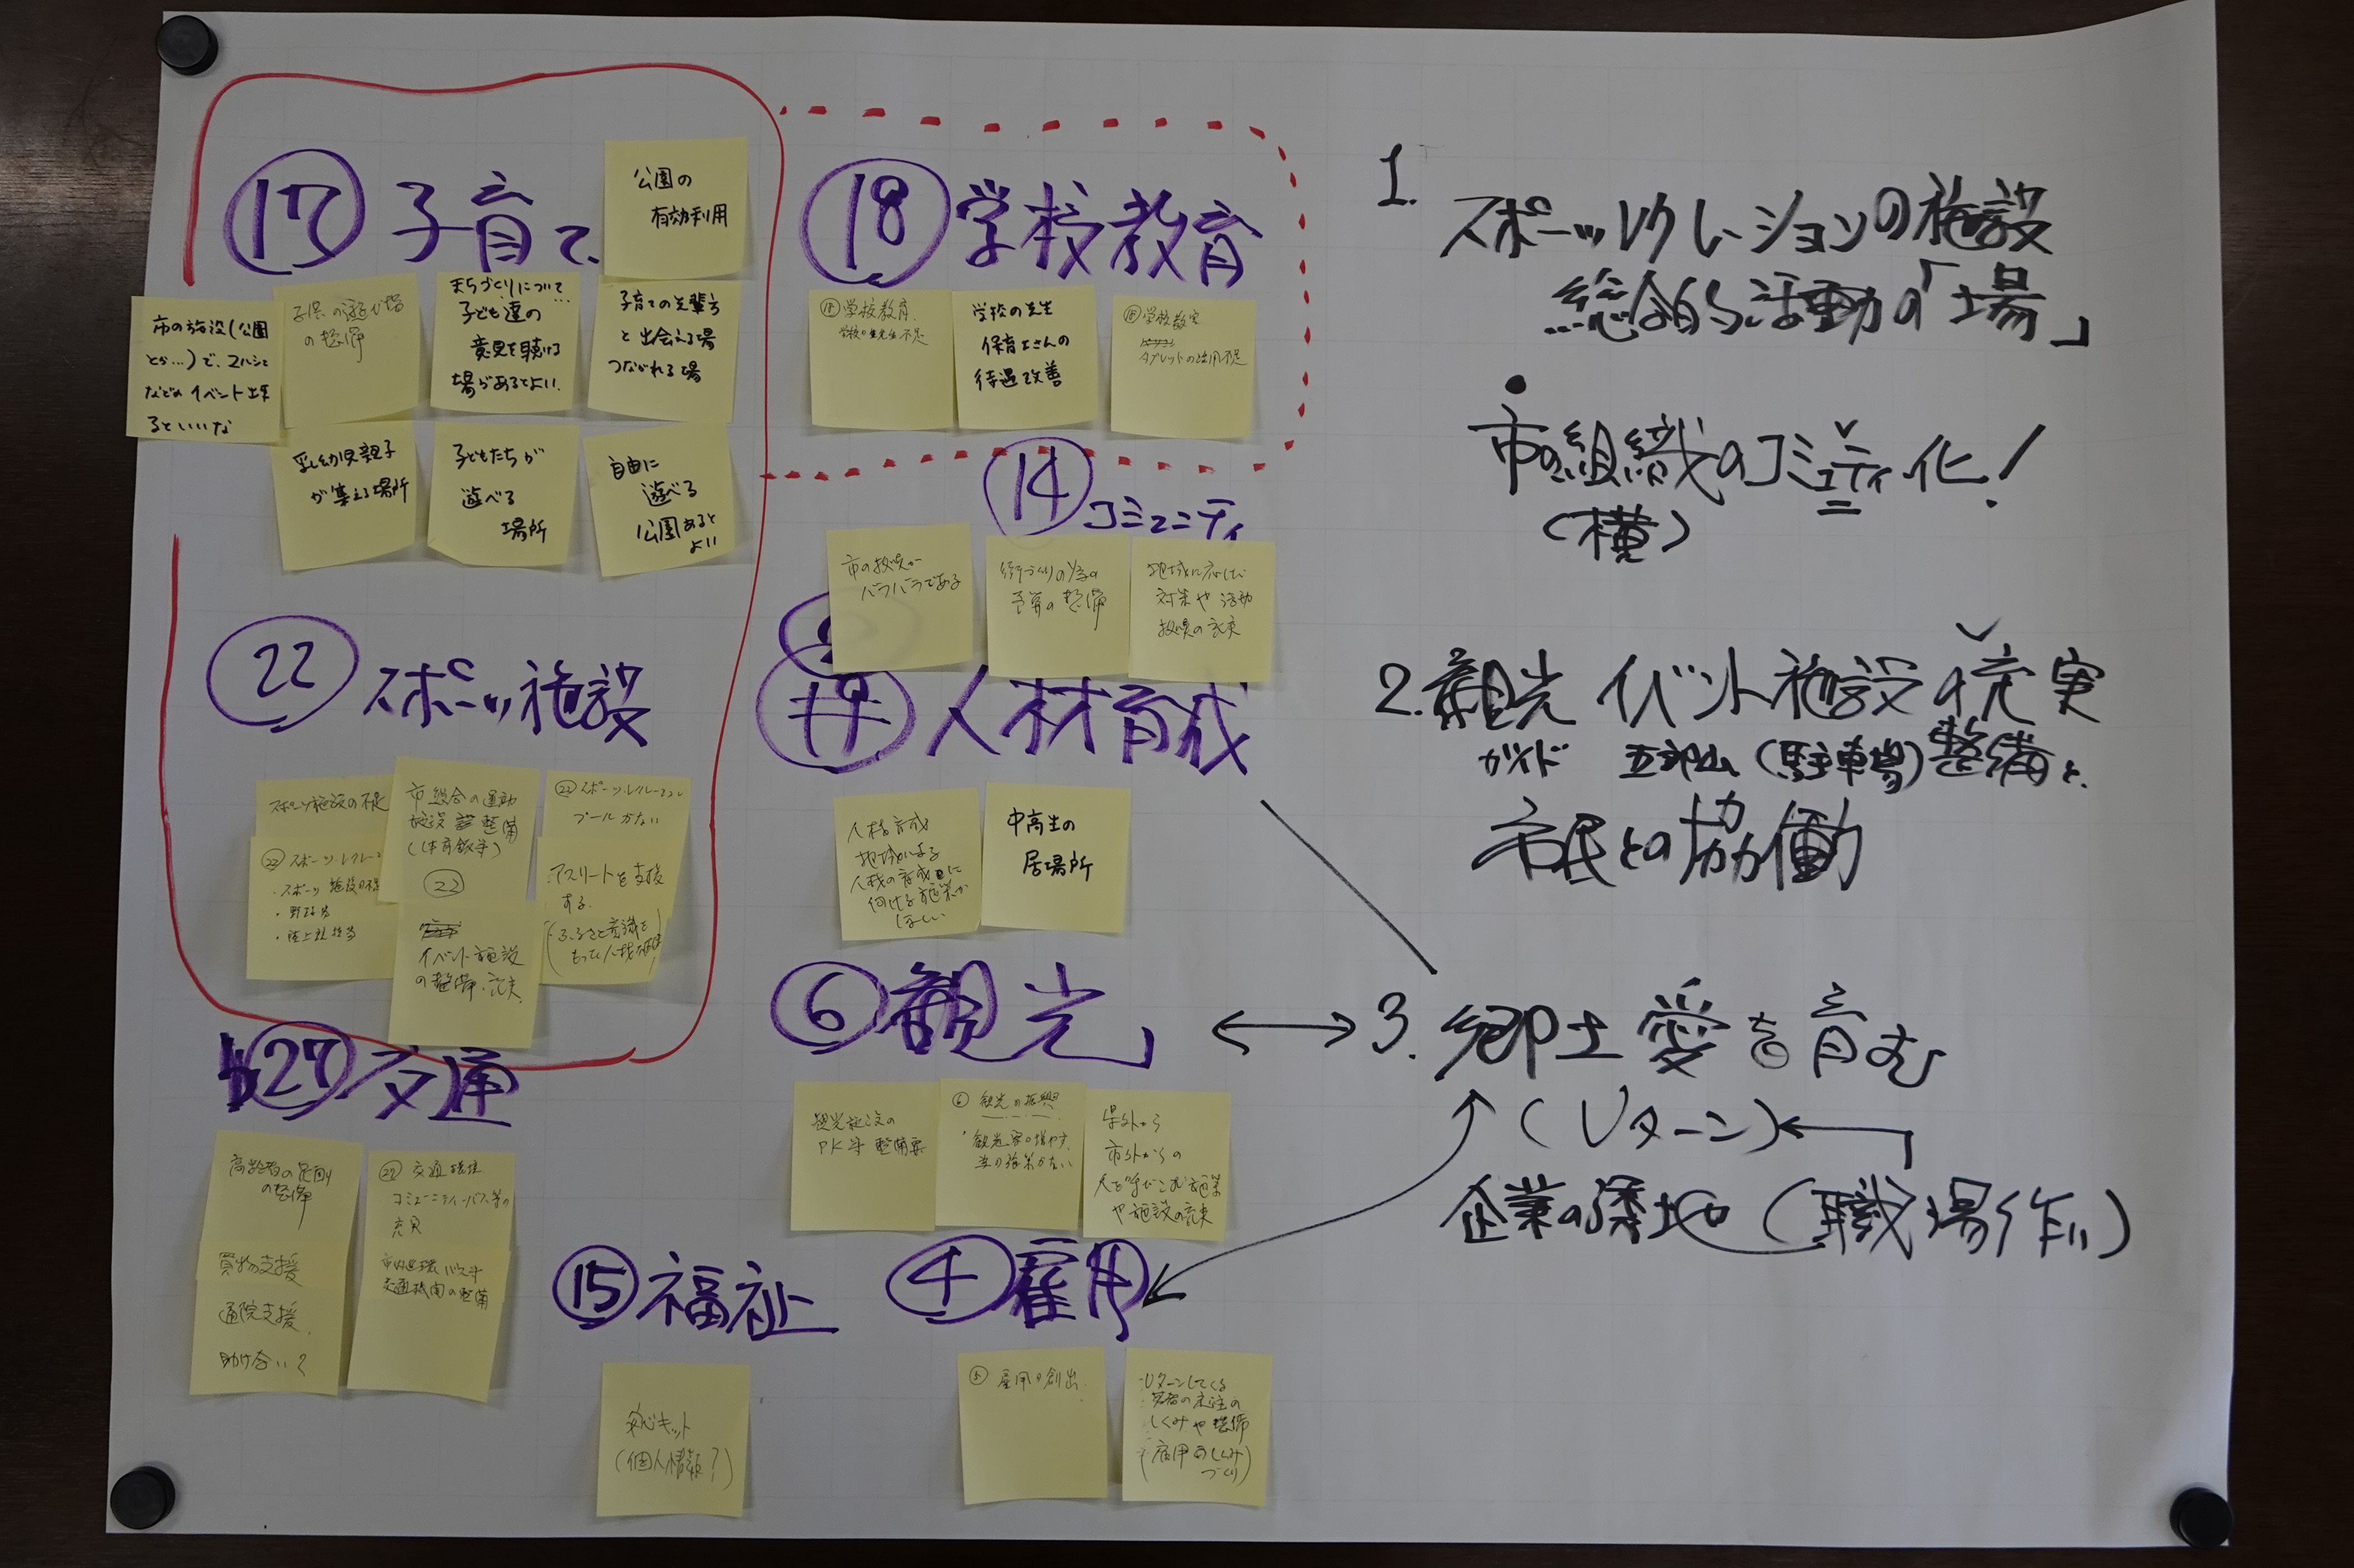 17 子育て
公園の
有効利用
市の施設(公園
とか…)で、マルシェ
などの イベント出来
るといいな
子供の遊び場
の整備
まちづくりについて…
子ども達の
意見を聴ける
場があるとよい.
子育ての先輩方
と出会える場
つながれる場
乳幼児親子
が集える場所
子どもたちが
遊べる
場所
自由に
遊べる
公園あると
よい
18 学校教育
⑱学校教育
学校の先生不足
学校の先生
保育士さんの
待遇改善
⑱学校教室
タブレットの活用不足
14 コミュニティ
市の
バラバラである
予算の整備
地域に応じた
対策や活動
22 スポーツ施設
スポーツ施設の不足
㉒スポーツ・レクレー
・スポーツ施設の不足
・野球場
・陸上競技場
市総合の運動
施設 整備
(体育館等)
㉒
イベント施設
の整備・充実
㉒スポーツ・レクレーション
プールがない
アスリートを支援
する.
(ふるさと意識を
もって人材
人材育成
人材育成
地域による
人材の育成に
向ける施策が
ほしい
中高生の
居場所
6 観光
観光拠点の
PK等 整備要
⑥ 観光の振興
・観光客の増やす
県外から
市外からの
人を呼びこむ施策
や施設の充実
27 交通
高齢者の足回り
の整備
買物支援
通院支援.
助け合い?
㉗ 交通環境
コミュニティーバス等の
充実
市内巡環バス等
交通機関の整備
15 福祉
安心キット
(個人情報?)
4 雇用
雇用の創出
・Uターンしてくる
若者の定住の
しくみや整備
(雇用のしくみ
づくり)
1. スポーツレクレーションの施設
総合的活動の「場」
・市の組織のコミュニティ化!
(横)
2. 観光 イベント施設の充実
ガイド 五郎山(駐車場)整備と、
市民との協働
3. 郷土愛を育む
(Uターン)
企業の誘地(職場作り)